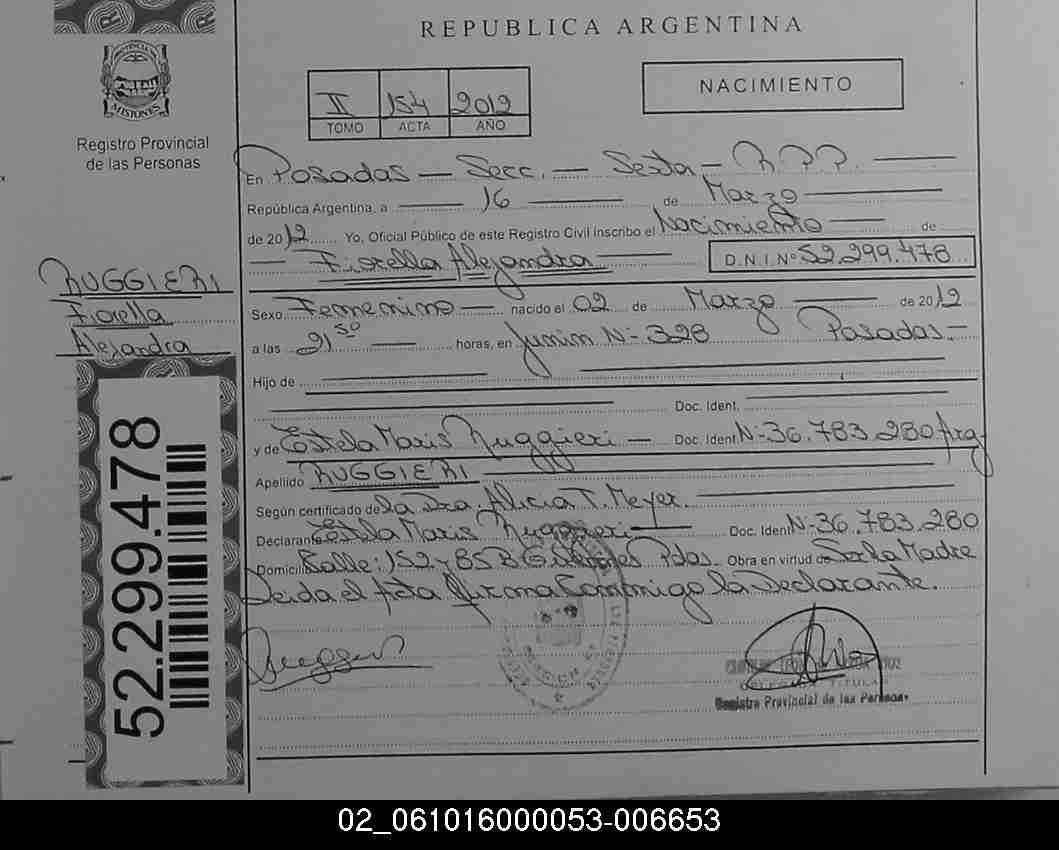 REPUBLICA ARGENTINA
PROVINCIA DE
MISIONES
Registro Provincial
de las Personas
II 154 2012
TOMO ACTA AÑO
NACIMIENTO
En Posadas — Secc. — Sexta — R.P.P. —
República Argentina, a — 16 — de Marzo —
de 2012 Yo, Oficial Público de este Registro Civil inscribo el Nacimiento — de
— Fiorella Alejandra — D.N.I. Nº 52.299.478
RUGGIERI
Fiorella
Alejandra
Sexo Femenino — nacido el 02 de Marzo — de 2012
a las 21 50 — horas, en Junin Nº 328 Posadas. —
Hijo de —
— Doc. Ident. —
y de Estela Maris Ruggieri — Doc. Ident Nº 36.783.280 Arg
Apellido RUGGIERI —
Según certificado de la Dra. Alicia T. Meyer. —
Declarante Estela Maris Ruggieri — Doc. Ident Nº 36.783.280
Domicilio Calle: 152 y 85 B Pdos. Obra en virtud de Ser la Madre
Leida el Acta Firma Conmigo la Declarante.
Ruggieri
TITULAR
Registro Provincial de las Personas
52.299.478
02_061016000053-006653